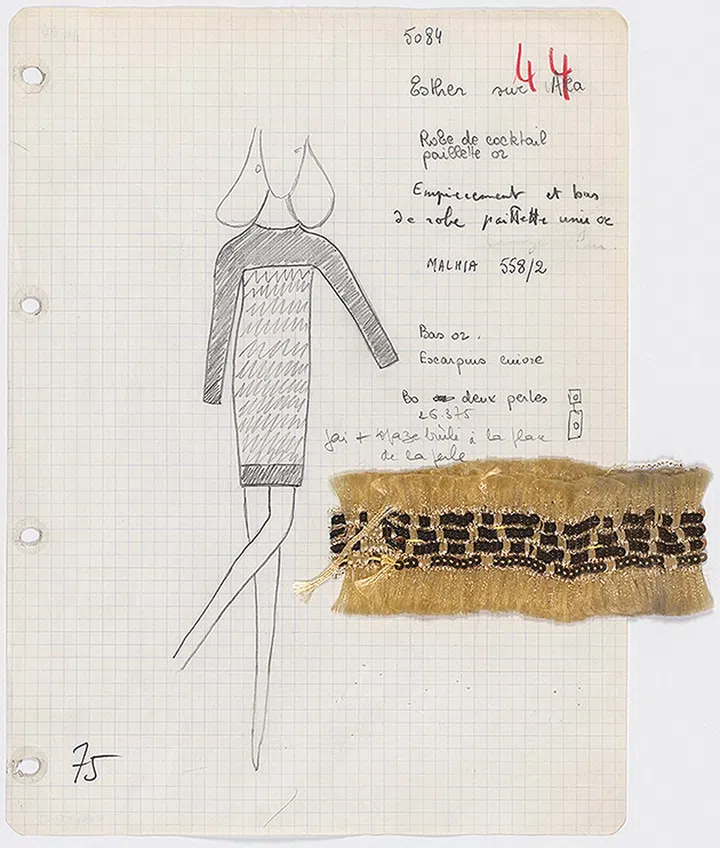 5084
44
Esther sur
Robe de cocktail
paillette or
Empiecement et bas
de robe paillette unie or
MALHIA 558/2
Bas or.
Escarpins cuivre
Bo deux perles
26.375
jai + à la place
de la perle
75